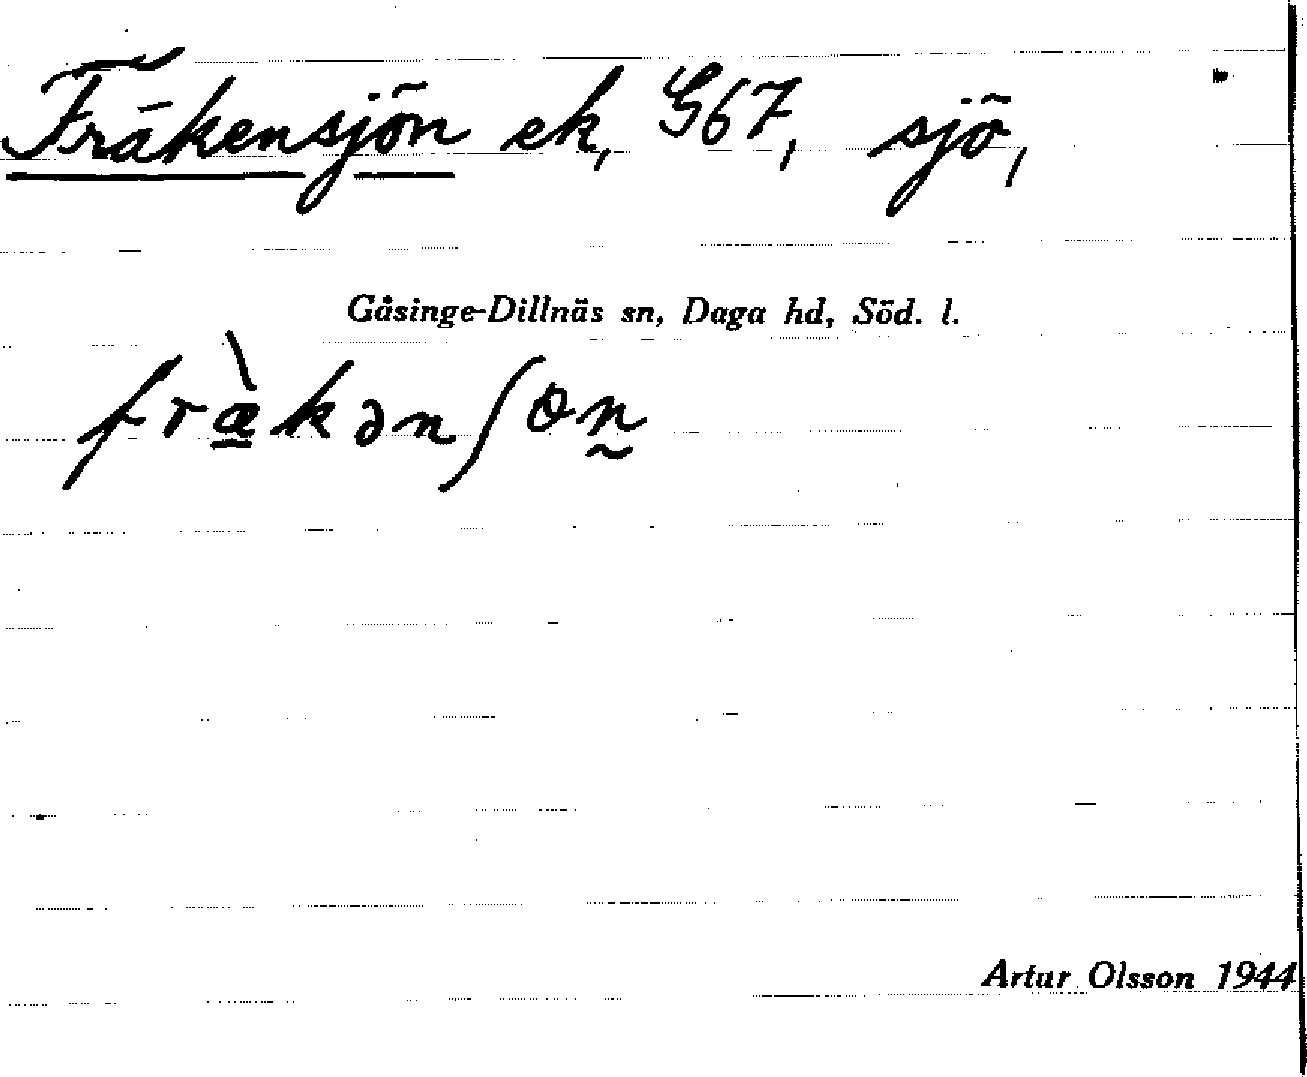 Fräkensjön ek, G67, sjö,
Gåsinge-Dillnäs sn, Daga hd, Söd. l.
fræ̠̀kənʃɵn̰
Artur Olsson 1944